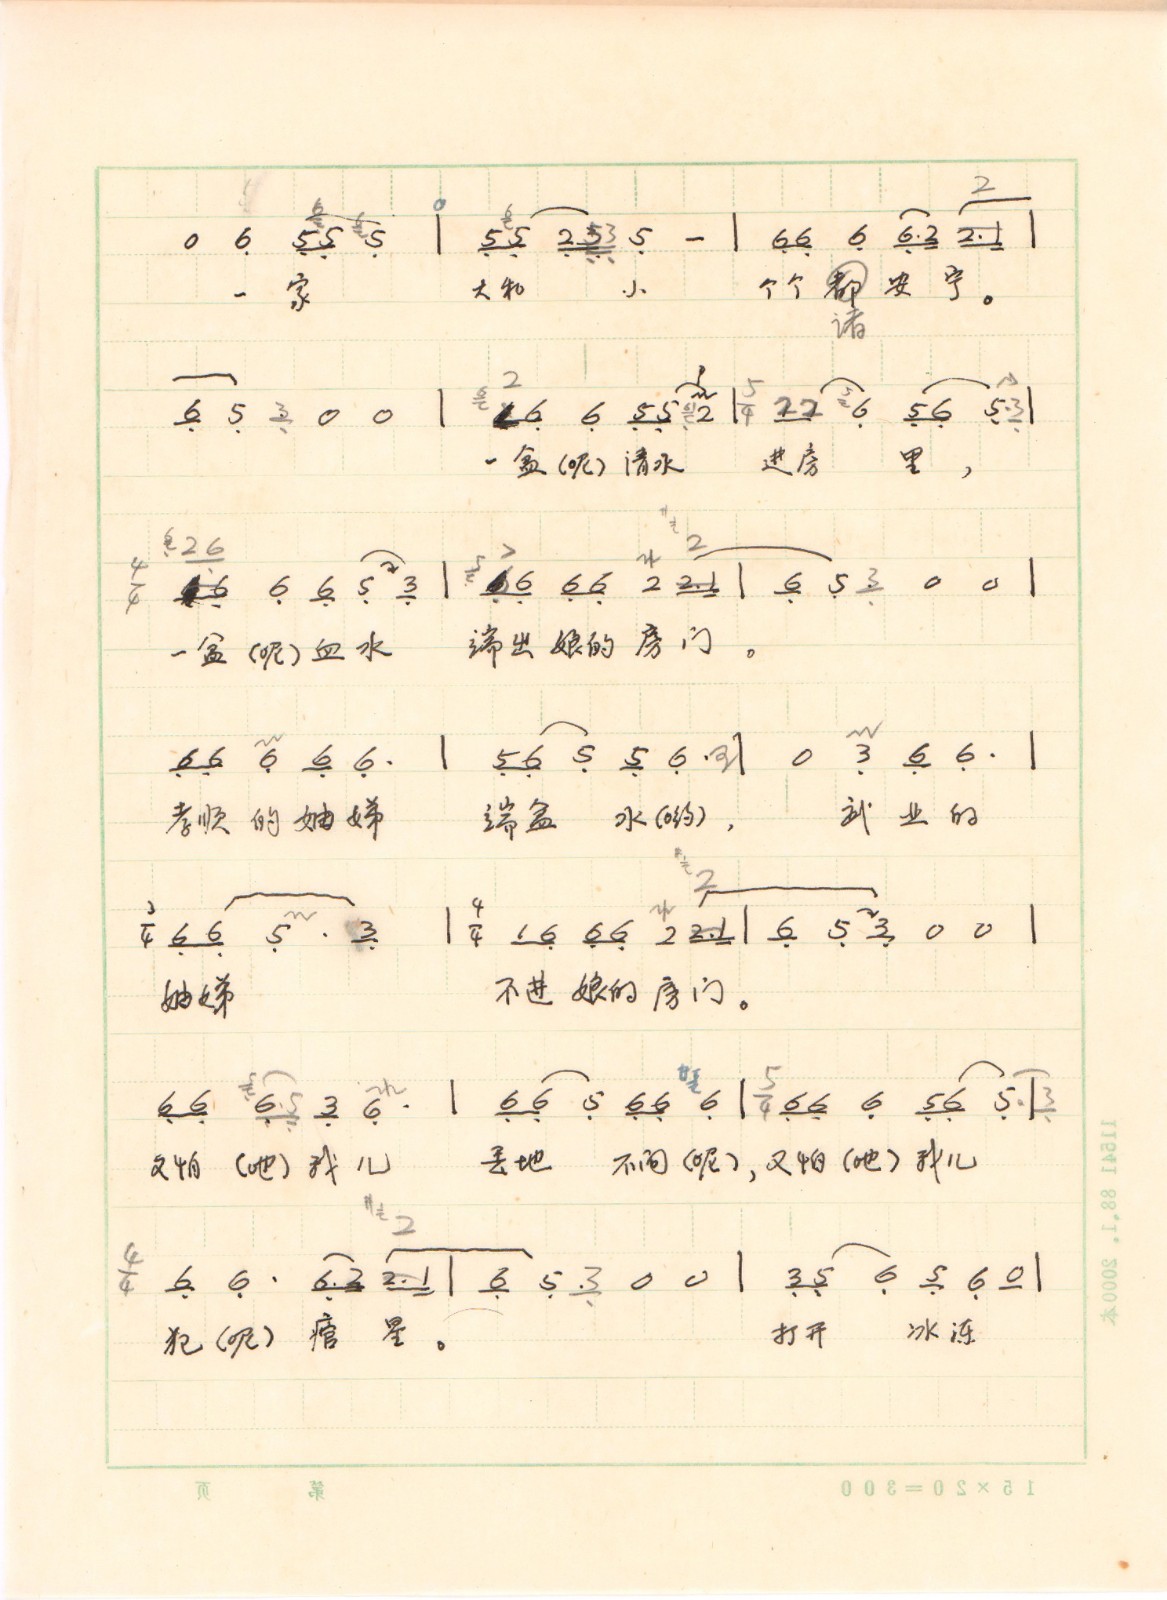 2
0 6 5 5 5 | 5 5 2 5 3 5 — | 6 6 6 6·2 2·1 |
一 家 大和 小 个个 都 安 宁。
诸
6 5 3 0 0 | 6 6 5 5 2 | 5/4 2 2 6 5 6 5·3 |
一盆(呢)清水 进房 里,
2 6
4/4 6 6 6 5 3 | 6 6 6 2 2·1 | 6 5 3 0 0 |
一盆(呢)血水 端出娘的房门。
6 6 6 6 6· | 5 6 5 5 6·3 | 0 3 6 6· |
孝顺的妯娣 端盆 水(哟), 就业的
3/4 6 6 5· 3 | 4/4 1 6 6 6 2 2·1 | 6 5 3 0 0 |
妯娣 不进娘的房门。
6 6 6·5 3 6· | 6 6 5 6 6 6 | 5/4 6 6 6 5 6 5·3
又怕(吔)我儿 丢地 不问(呢),又怕(吔)我儿
2
4/4 6 6· 6·2 2·1 | 6 5·3 0 0 | 3 5 6 5 6 0 |
犯(呢)痯 星。 打开 冰冻
15×20=300 第 页
11641 88.1. 2000本